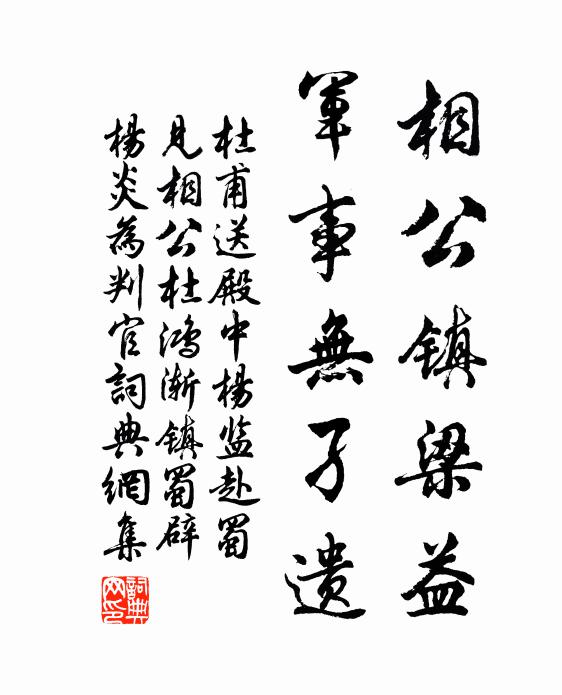 相公镇梁益
軍事無孑遺
杜甫送殿中楊监赴蜀
見相公杜鴻渐镇蜀辟
楊炎為判官詞典網集
詞典
网印